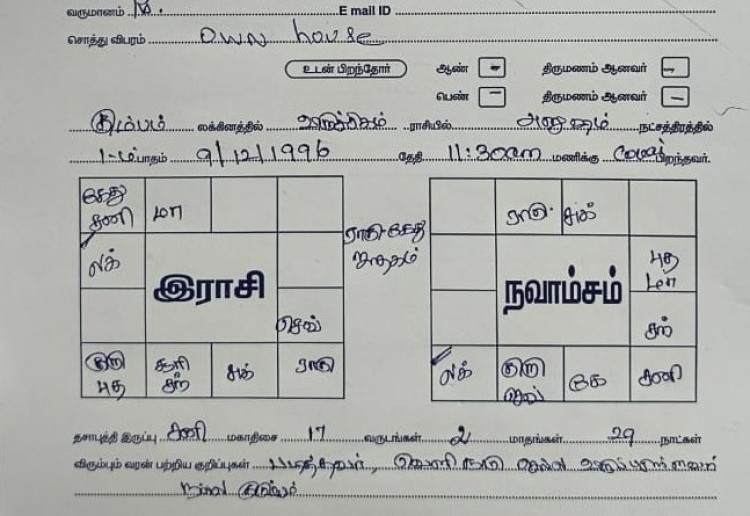 வருமானம் E mail ID
சொத்து விபரம் own house
உடன் பிறந்தோர் ஆண் - திருமணம் ஆனவர் -
பெண் - திருமணம் ஆனவர் -
கும்பம் லக்கினத்தில் விருச்சிகம் ராசியில் அனுஷம் நட்சத்திரத்தில்
1-ம் பாதம் 9/12/1996 தேதி 11:30am மணிக்கு பிறந்தவர்.
கேது சனி மா
லக்
இராசி
செவ்
குரு புத சூரி சுக் ராகு
ராகு கேது ஜாதகம்
ராகு சுக்
புத மா
நவாம்சம்
லக் குரு செவ் கே சனி
தசாபுத்தி இருப்பு சனி மகாதிசை 17 வருடங்கள் 2 மாதங்கள் 29 நாட்கள்
விரும்பும் வரன் பற்றிய குறிப்புகள் படித்தவர்,
நல்ல குடும்பம்